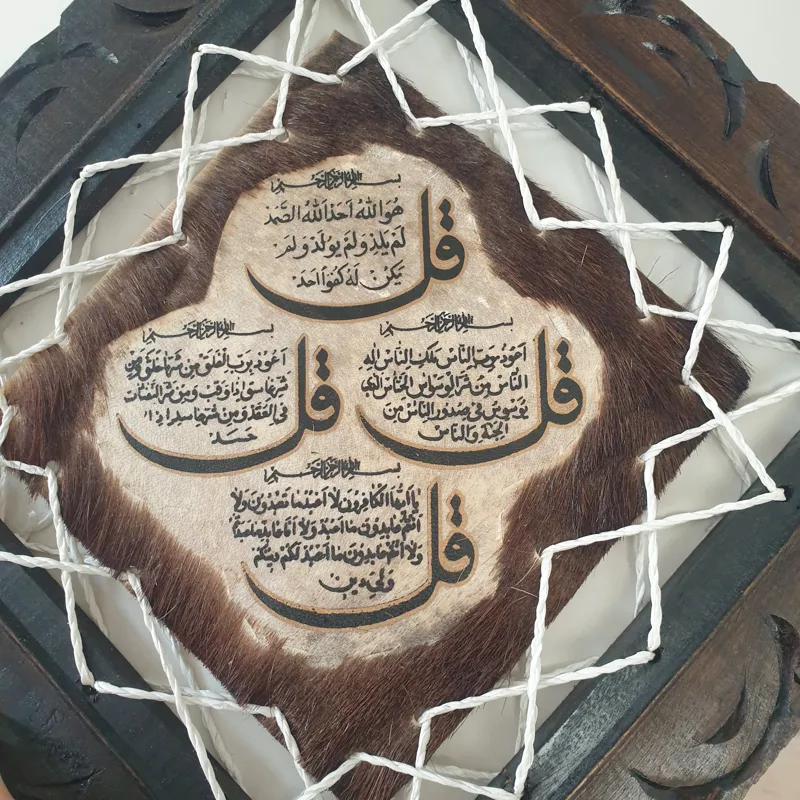 بسم الله الرحمن الرحيم
قل هو الله احد الله الصمد
لم يلد ولم يولد ولم
يكن له كفوا احد
بسم الله الرحمن الرحيم
قل اعوذ برب الناس ملك الناس اله
الناس من شر الوسواس الخناس الذي
يوسوس في صدور الناس من
الجنة والناس
بسم الله الرحمن الرحيم
قل اعوذ برب الفلق من شر ما خلق ومن
شر غاسق اذا وقب ومن شر النفاثات
في العقد ومن شر حاسد اذا
حسد
بسم الله الرحمن الرحيم
قل يا ايها الكافرون لا اعبد ما تعبدون ولا
انتم عابدون ما اعبد ولا انا عابد ما عبدتم
ولا انتم عابدون ما اعبد لكم دينكم
ولي دين